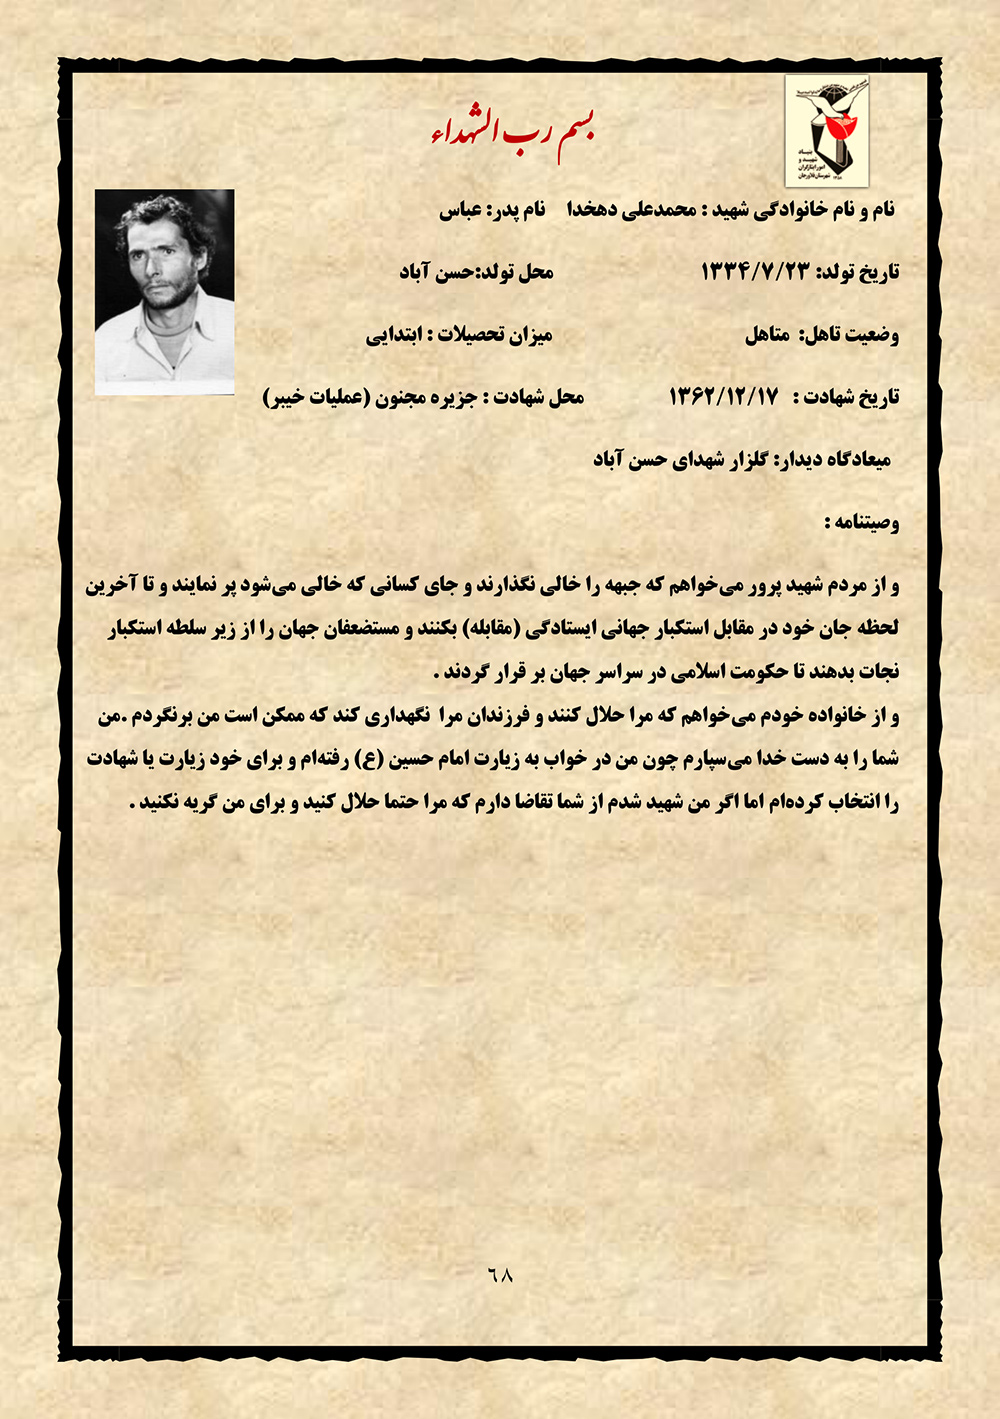 بسم رب الشهداء
بنیاد
شهید و
امور ایثارگران
شهرستان فلاورجان
نام و نام خانوادگی شهید : محمدعلی دهخدا نام پدر: عباس
تاریخ تولد: ۱۳۳۴/۷/۲۳ محل تولد:حسن آباد
وضعیت تاهل: متاهل میزان تحصیلات : ابتدایی
تاریخ شهادت : ۱۳۶۲/۱۲/۱۷ محل شهادت : جزیره مجنون (عملیات خیبر)
میعادگاه دیدار: گلزار شهدای حسن آباد
وصیتنامه :
و از مردم شهید پرور می‌خواهم که جبهه را خالی نگذارند و جای کسانی که خالی می‌شود پر نمایند و تا آخرین
لحظه جان خود در مقابل استکبار جهانی ایستادگی (مقابله) بکنند و مستضعفان جهان را از زیر سلطه استکبار
نجات بدهند تا حکومت اسلامی در سراسر جهان بر قرار گردند .
و از خانواده خودم می‌خواهم که مرا حلال کنند و فرزندان مرا نگهداری کند که ممکن است من برنگردم .من
شما را به دست خدا می‌سپارم چون من در خواب به زیارت امام حسین (ع) رفته‌ام و برای خود زیارت یا شهادت
را انتخاب کرده‌ام اما اگر من شهید شدم از شما تقاضا دارم که مرا حتما حلال کنید و برای من گریه نکنید .
٦٨